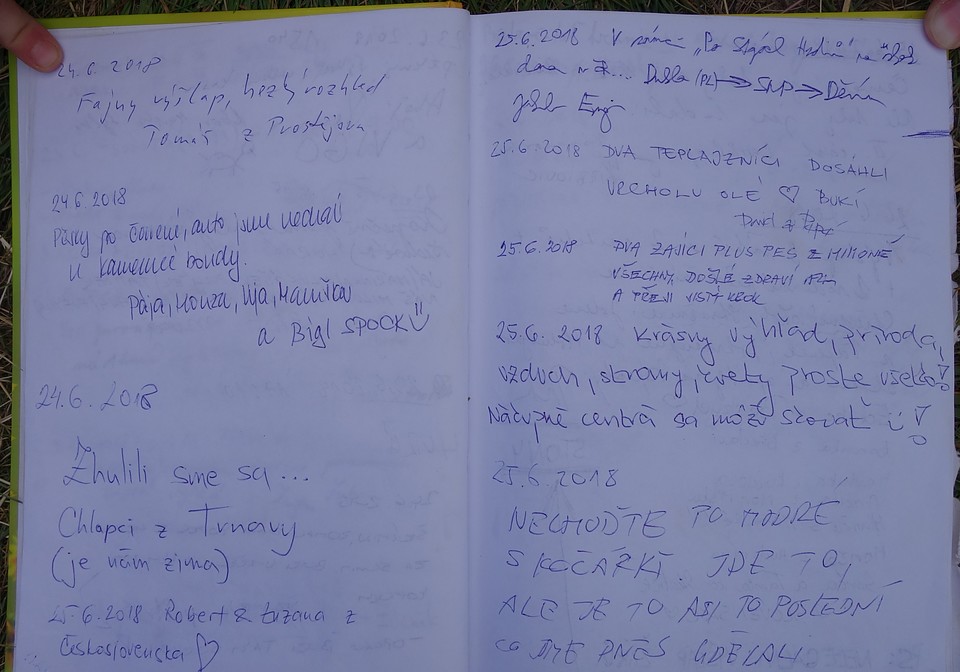 24.6.2018
Fajny výšlap, hezký rozhled
Tomáš z Prostějova
24.6.2018
Pěšky po červené, auto jsme nechali
u kamenné boudy.
Pája, Honza, Mája,
a Bígl SPOCK
24.6.2018
Zhulili sme sa...
Chlapci z Trnavy
(je nám zima)
25.6.2018 Robert & Zuzana z
Československa ♡
25.6.2018 V rámci „Po Stopách Hrdinů" na
dena Dukla (PL) → SNP → Děvín
25.6.2018 DVA TEPLAJZNÍCI DOSÁHLI
VRCHOLU OLÉ ♡ BUKÍ
David
25.6.2018 DVA ZAJÍCI PLUS PES Z MIMONĚ
VŠECHNY DOŠLÉ ZDRAVÍ
A PŘEJÍ
25.6.2018 Krásny výhľad, príroda,
vzduch, stromy, kvety proste všetko!
Nákupné centrá sa môžu schovať !
25.6.2018
NECHOĎTE PO MODRÉ
S KOČÁRKY. JDE TO,
ALE JE TO ASI TO POSLEDNÍ
CO JSME DNES UDĚLALI